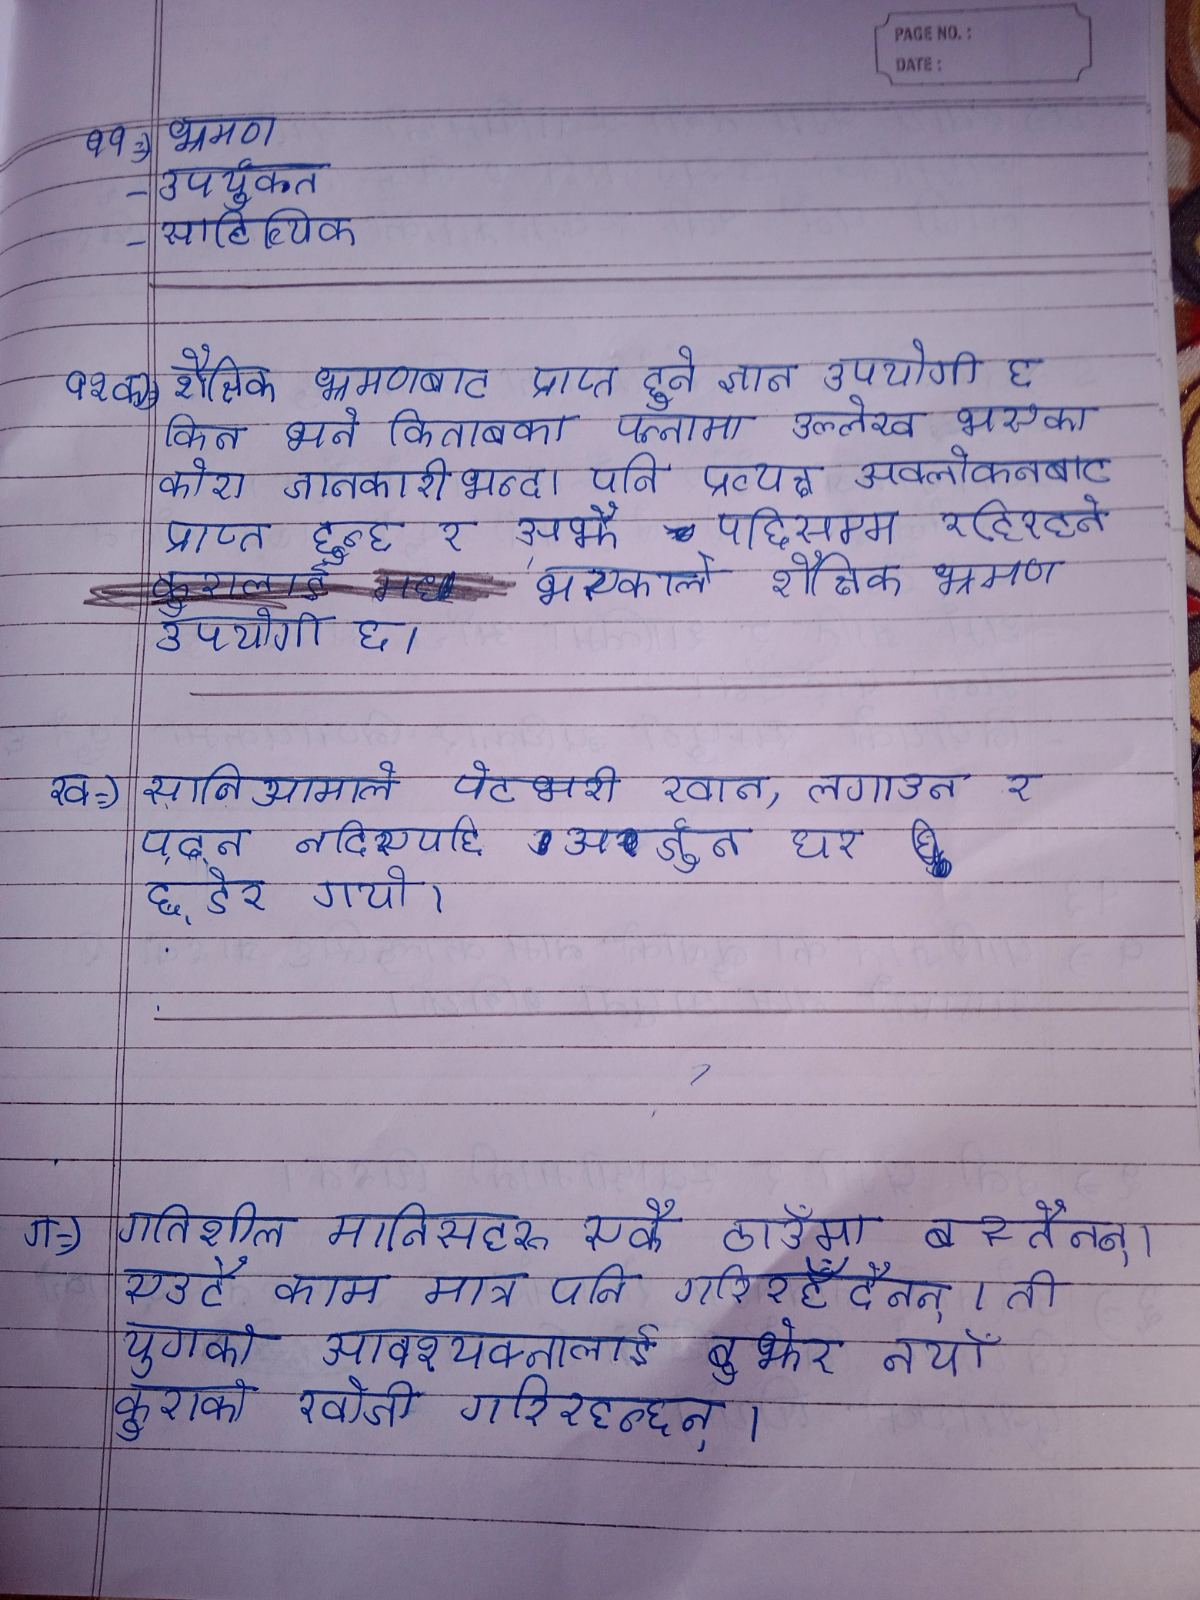 PAGE NO. :
DATE :
११⇒ भ्रमण
- उपर्युक्त
- साहित्यिक
१२क⇒ शैक्षिक भ्रमणबाट प्राप्त हुने ज्ञान उपयोगी छ
किन भने किताबका पन्नामा उल्लेख भएका
कोरा जानकारी भन्दा पनि प्रत्यक्ष अवलोकनबाट
प्राप्त हुन्छ र अझै पछिसम्म रहिरहने
भएकाले शैक्षिक भ्रमण
उपयोगी छ।
ख⇒ सानिआमाले पेटभरी खान, लगाउन र
पढ्न नदिएपछि अर्जुन घर
छाडेर गयो।
ग⇒ गतिशील मानिसहरू एकै ठाउँमा बस्तैनन्।
एउटै काम मात्र पनि गरिरहँदैनन्। ती
युगको आवश्यकतालाई बुझेर नयाँ
कुराको खोजी गरिरहन्छन्।